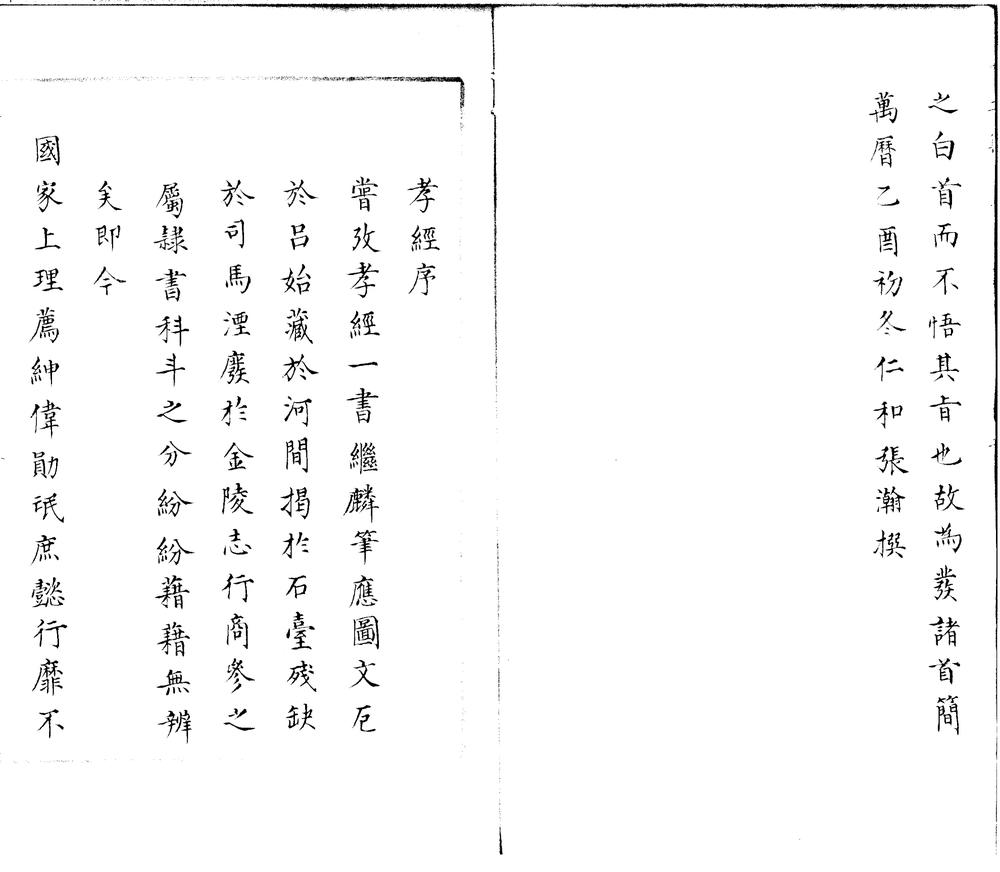 之白首而不悟其旨也故為發諸首簡
萬曆乙酉初冬仁和張瀚撰
孝經序
嘗攷孝經一書繼麟筆應圖文厄
於呂始藏於河間揭於石臺殘缺
於司馬湮廢於金陵志行商參之
屬隸書科斗之分紛紛藉藉無辨
矣即今
國家上理薦紳偉勛珉庶懿行靡不